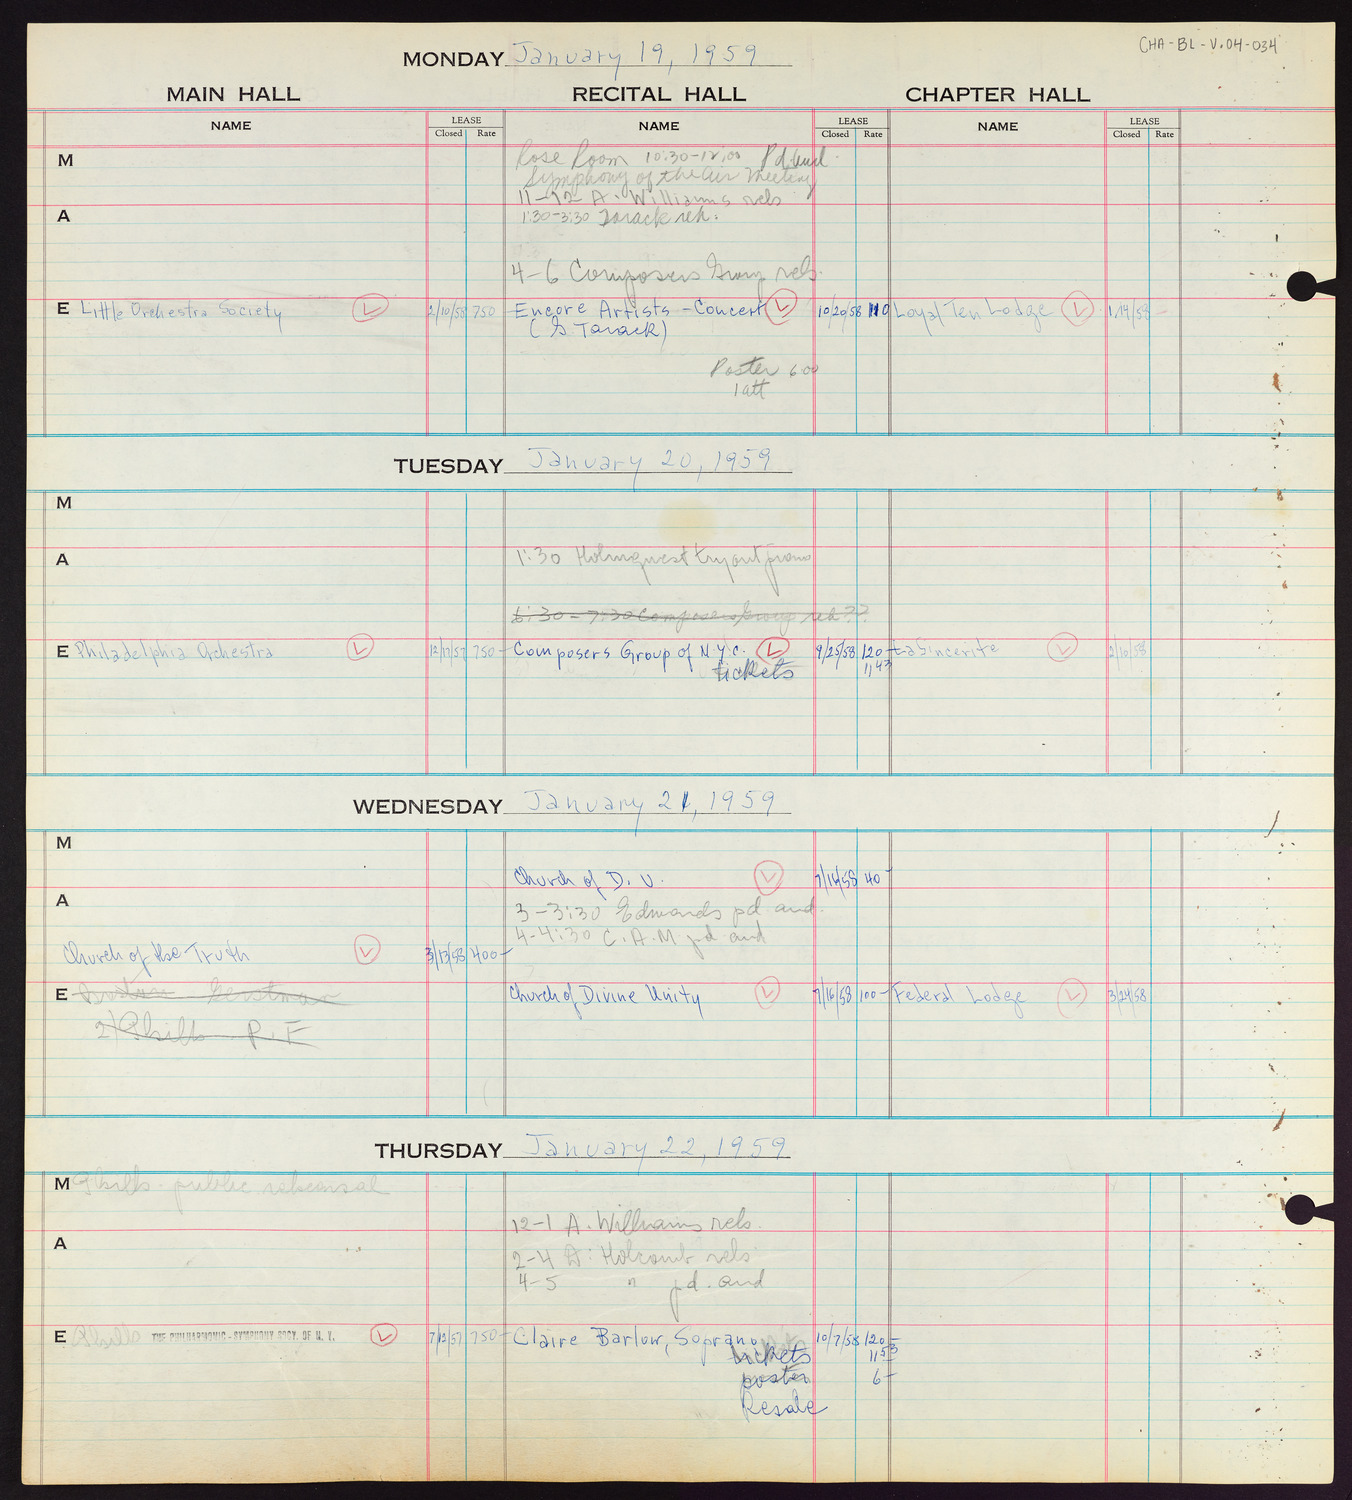 CHA-BL-V.04-034
MONDAY January 19, 1959
MAIN HALL RECITAL HALL CHAPTER HALL
NAME LEASE Closed Rate NAME LEASE Closed Rate NAME LEASE Closed Rate
M Rose Room 10:30-12:00 Pd aud.
Symphony of the Air Meeting
11-12 A. Williams rels
A 1:30-3:30 Tarack reh.
4-6 Composers Group rels.
E Little Orchestra Society L 2/10/58 750 Encore Artists - Concert L 10/20/58 110 Loyal Ten Lodge L 1/14/58
(G Tarack)
Poster 6.00
1 att
TUESDAY January 20, 1959
M
A 1:30 Holmquest tryout piano
6:30-7:30 Composers Group reh??
E Philadelphia Orchestra L 12/17/57 750- Composers Group of N.Y.C. L 9/25/58 120- La Sincerite L 2/10/58
tickets 11 43
WEDNESDAY January 21, 1959
M
Church of D. U. L 7/16/58 40-
A 3-3:30 Edwards pd aud.
4-4:30 C.A.M. pd aud
Church of the Truth L 3/13/58 400-
E Gerstman Church of Divine Unity L 7/16/58 100- Federal Lodge L 3/24/58
2) Philh P.F
THURSDAY January 22, 1959
M Philh public rehearsal
12-1 A. Williams rels.
A 2-4 A. Holcomb rels
4-5 " pd. aud
E Philh THE PHILHARMONIC-SYMPHONY SOCY. OF N. Y. L 7/12/57 750- Claire Barlow, Soprano 10/7/58 120-
tickets 11 53
poster 6-
Resale